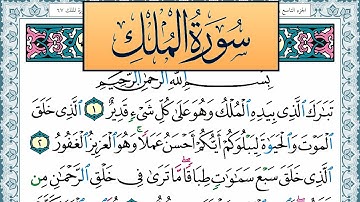 الجزء التاسع
سورة الملك ٦٧
سُورَةُ الْمُلْكِ
بِسْمِ اللَّهِ الرَّحْمَٰنِ الرَّحِيمِ
تَبَارَكَ الَّذِي بِيَدِهِ الْمُلْكُ وَهُوَ عَلَىٰ كُلِّ شَيْءٍ قَدِيرٌ ١ الَّذِي خَلَقَ
الْمَوْتَ وَالْحَيَوٰةَ لِيَبْلُوَكُمْ أَيُّكُمْ أَحْسَنُ عَمَلًا ۚ وَهُوَ الْعَزِيزُ الْغَفُورُ ٢
الَّذِي خَلَقَ سَبْعَ سَمَٰوَٰتٍ طِبَاقًا ۖ مَّا تَرَىٰ فِي خَلْقِ الرَّحْمَٰنِ مِن